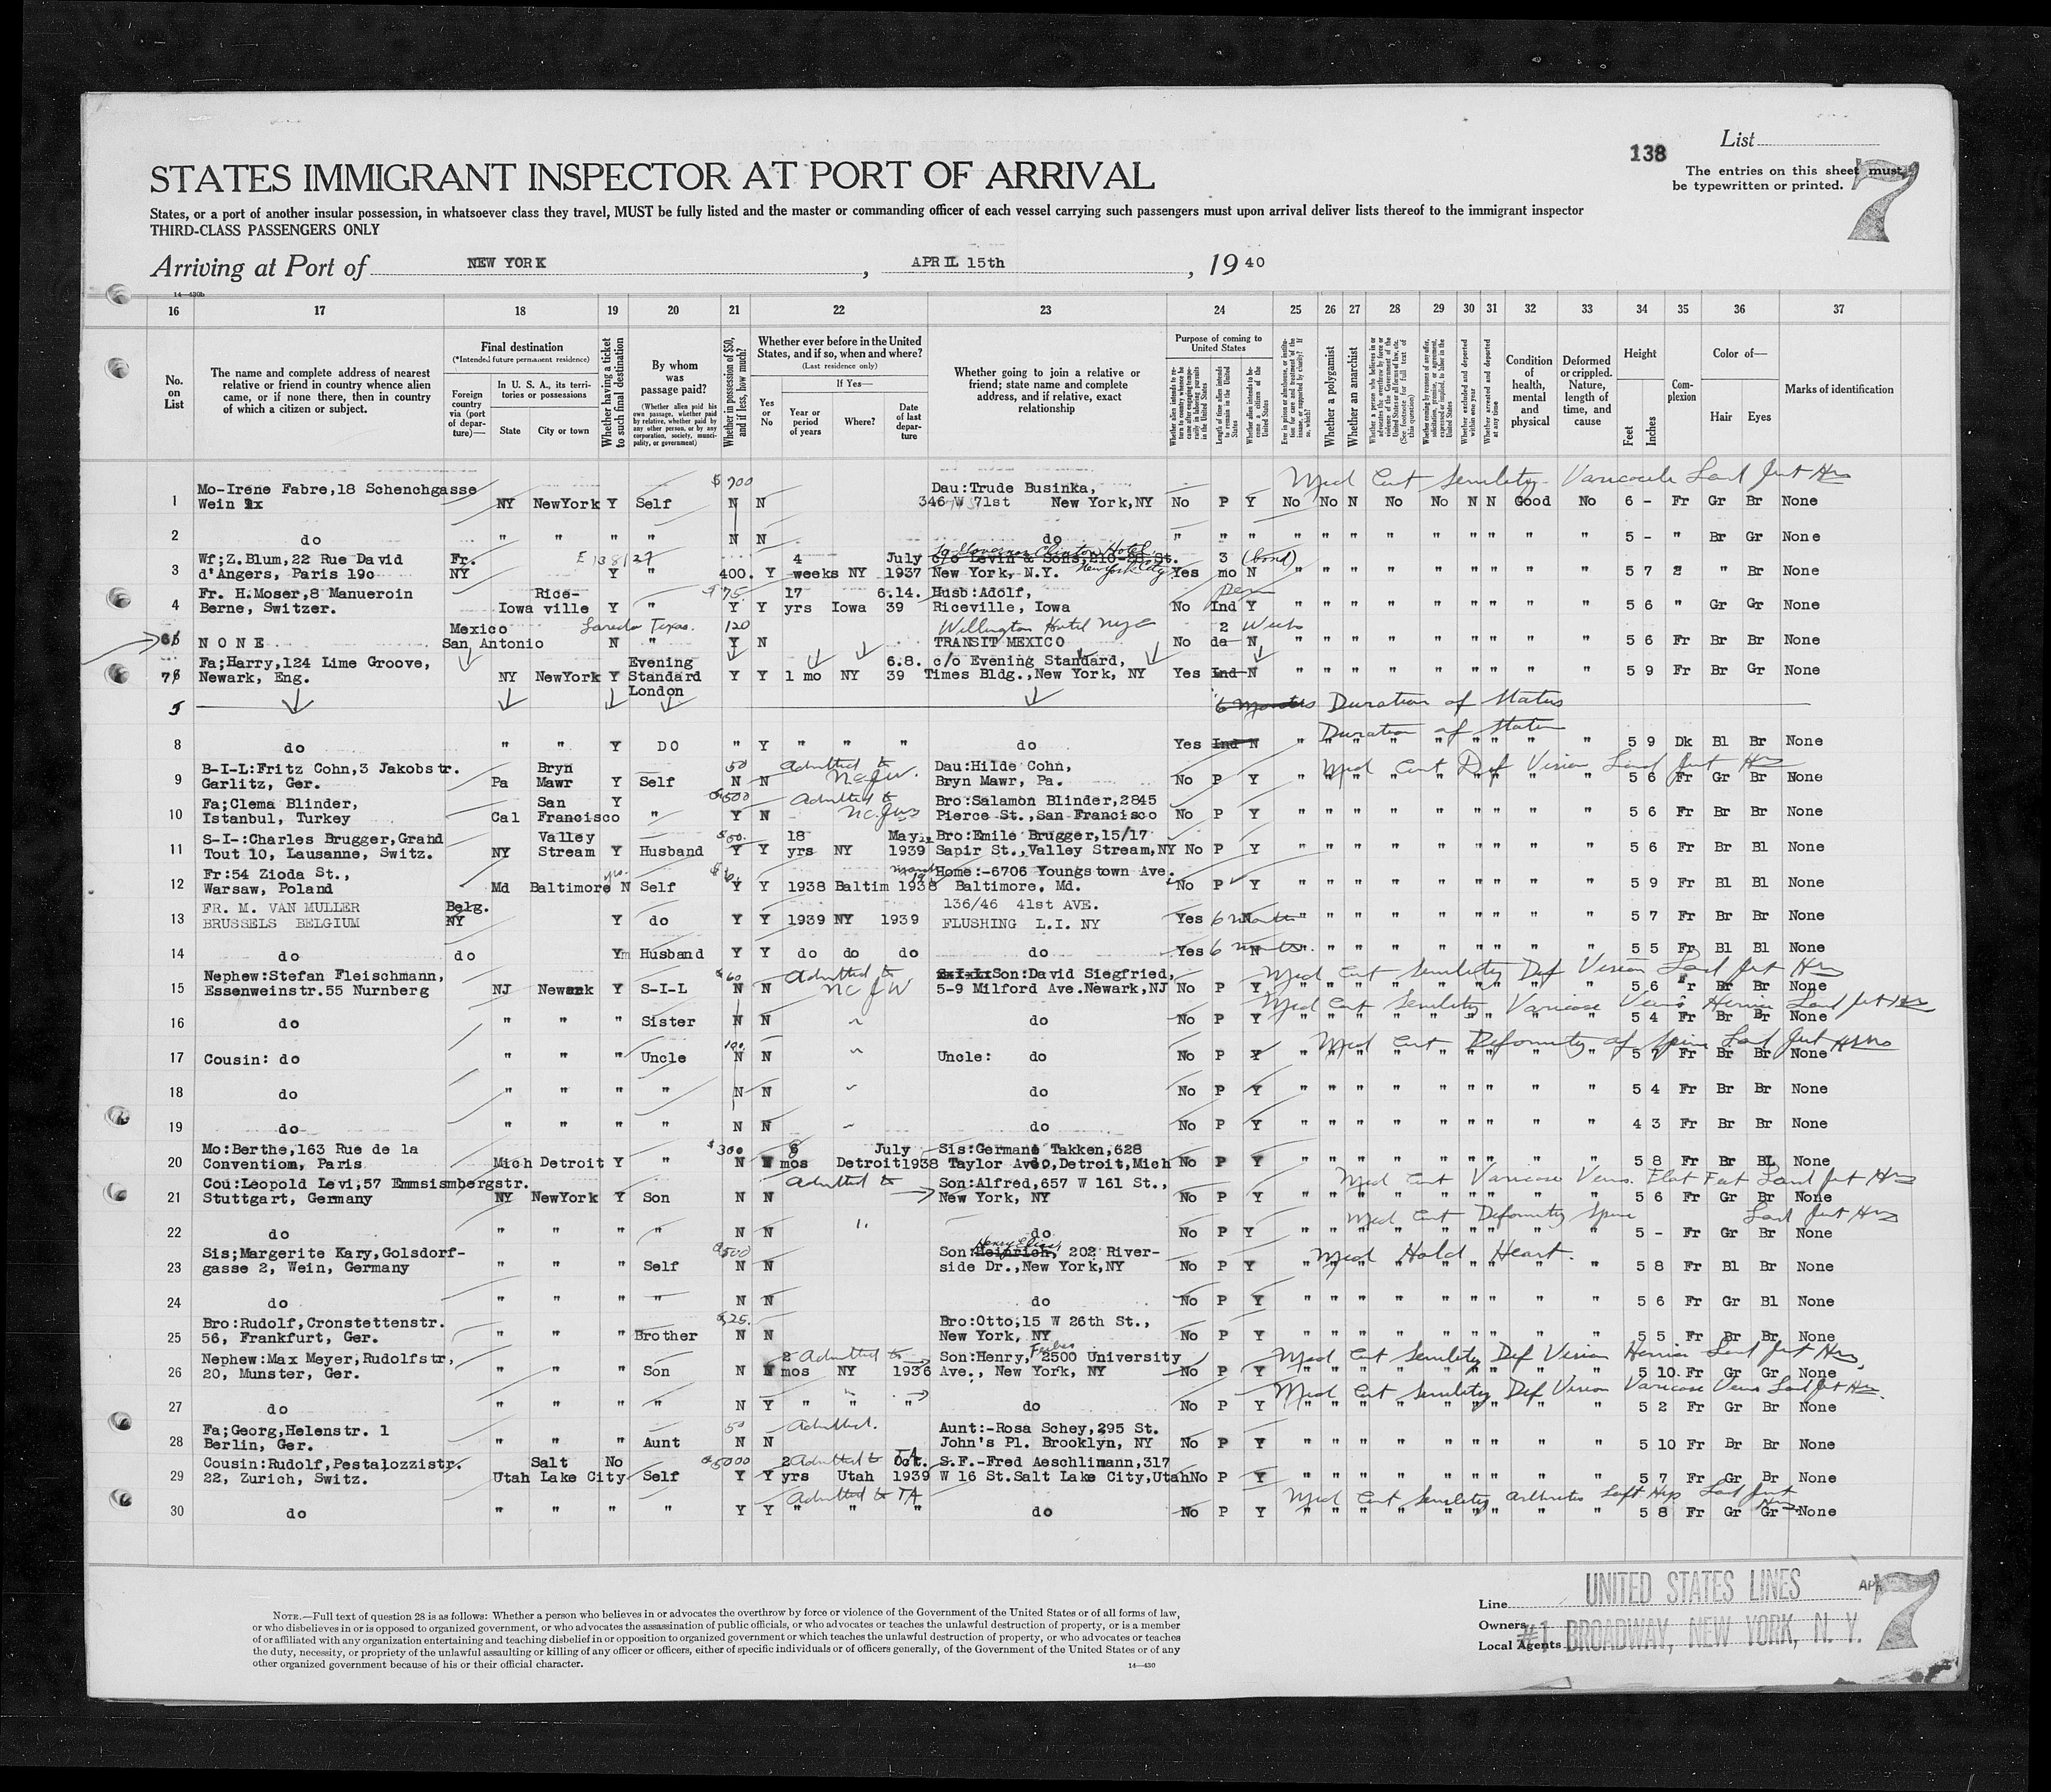 138
List
The entries on this sheet must
be typewritten or printed.
7
STATES IMMIGRANT INSPECTOR AT PORT OF ARRIVAL
States, or a port of another insular possession, in whatsoever class they travel, MUST be fully listed and the master or commanding officer of each vessel carrying such passengers must upon arrival deliver lists thereof to the immigrant inspector
THIRD-CLASS PASSENGERS ONLY
Arriving at Port of NEW YORK, APRIL 15th, 1940
14—430b
16 17 18 19 20 21 22 23 24 25 26 27 28 29 30 31 32 33 34 35 36 37
No. on List
The name and complete address of nearest relative or friend in country whence alien came, or if none there, then in country of which a citizen or subject.
Final destination
(*Intended future permanent residence)
Foreign country via (port of departure)—
In U. S. A., its territories or possessions
State City or town
Whether having a ticket to such final destination
By whom was passage paid?
(Whether alien paid his own passage, whether paid by relative, whether paid by any other person, or by any corporation, society, municipality, or government)
Whether in possession of $50, and if less, how much?
Whether ever before in the United States, and if so, when and where?
(Last residence only)
Yes or No
If Yes—
Year or period of years Where? Date of last departure
Whether going to join a relative or friend; state name and complete address, and if relative, exact relationship
Purpose of coming to United States
Length of time alien intends to remain in the United States
Whether alien intends to become a citizen of the United States
Whether a polygamist
Whether an anarchist
Whether excluded and deported within one year
Whether arrested and deported at any time
Condition of health, mental and physical
Deformed or crippled. Nature, length of time, and cause
Height
Feet Inches
Complexion
Color of—
Hair Eyes
Marks of identification
$ 700 Med Cert Senility Varicocele
Mo-Irene Fabre,18 Schenchgasse Dau:Trude Businka,
1 Wein NY NewYork Y Self N N 346 W 71st New York,NY No P Y No No N No No N N Good No 6 - Fr Gr Br None
2 do " " " " N N do " " " " " " " " " " " " 5 - " Br Gr None
Wf;Z.Blum,22 Rue David Fr. 4 July c/o Levin & Sons, 3 (bond)
3 d'Angers, Paris 19c NY Y " 400. Y weeks NY 1937 New York, N.Y. New York City Yes mo N " " " " " " " " " 5 7 " Br None
Fr. H.Moser,8 Manueroin Rice- $75. 17 6.14. Husb:Adolf,
4 Berne, Switzer. Iowa ville Y " Y Y yrs Iowa 39 Riceville, Iowa No Ind Y " " " " " " " " " 5 6 " Gr Gr None
Mexico Laredo Texas. 120 Wellington Hotel NYC 2 Weeks
6 N O N E San Antonio N " Y N TRANSIT MEXICO No da N " " " " " " " " " 5 6 Fr Br Br None
Fa;Harry,124 Lime Groove, Evening 6.8. c/o Evening Standard,
7 Newark, Eng. NY NewYork Y Standard Y Y 1 mo NY 39 Times Bldg.,New York, NY Yes Ind N " " " " " " " " " 5 9 Fr Br Gr None
London
5 6 Months Duration of Status
Duration of Status
8 do " " Y DO " Y " " " do Yes Ind N " " " " " " " " " 5 9 Dk Bl Br None
B-I-L:Fritz Cohn,3 Jakobstr. Bryn 50 Admitted to Dau:Hilde Cohn, Med Cert Def Vision
9 Garlitz, Ger. Pa Mawr Y Self N N Bryn Mawr, Pa. No P Y " " " " " " " " " 5 6 Fr Gr Br None
Fa;Clema Blinder, San Y $500 Admitted to Bro:Salamon Blinder,2845
10 Istanbul, Turkey Cal Francisco " Y N Pierce St.,San Francisco No P Y " " " " " " " " " 5 6 Fr Br Br None
S-I-:Charles Brugger,Grand Valley $50. 18 May, Bro:Emile Brugger,15/17
11 Tout 10, Lausanne, Switz. NY Stream Y Husband Y Y yrs NY 1939 Sapir St.,Valley Stream,NY No P Y " " " " " " " " " 5 6 Fr Br Bl None
Fr:54 Zioda St., yes Home:-6706 Youngstown Ave.
12 Warsaw, Poland Md Baltimore N Self Y Y 1938 Baltim 1938 Baltimore, Md. No P Y " " " " " " " " " 5 9 Fr Bl Bl None
FR. M. VAN MULLER Belg. 136/46 41st AVE.
13 BRUSSELS BELGIUM NY Y do Y Y 1939 NY 1939 FLUSHING L.I. NY Yes 6 months N " " " " " " " " 5 7 Fr Br Br None
14 do do Y Husband Y Y do do do do Yes 6 months N " " " " " " " " 5 5 Fr Bl Bl None
Nephew:Stefan Fleischmann, $60 Admitted to Son:David Siegfried, Med Cert Senility Def Vision
15 Essenweinstr.55 Nurnberg NJ Newark Y S-I-L N N NCJW 5-9 Milford Ave.Newark,NJ No P Y 5 6 Fr Br Br None
Med Cert Senility Varicose Veins Hernia
16 do " " " Sister N N do No P Y " " " " " " " " " 5 4 Fr Br Br None
100 Med Cert Deformity of Spine
17 Cousin: do " " " Uncle N N Uncle: do No P Y " " " " " " " " " 5 7 Fr Br Br None
18 do " " " " N N do No P Y " " " " " " " " " 5 4 Fr Br Br None
19 do " " " " N N do No P Y " " " " " " " " " 4 3 Fr Br Br None
Mo:Berthe,163 Rue de la $300 8 July Sis:Germane Takken,628
20 Convention, Paris Mich Detroit Y " N mos Detroit 1938 Taylor Ave,Detroit,Mich No P Y " " " " " " " " " 5 8 Fr Br BL None
Cou:Leopold Levi,57 Emmsismbergstr. Admitted to Son:Alfred,657 W 161 St., Med Cert Varicose Veins. Flat Feet
21 Stuttgart, Germany NY NewYork Y Son N N New York, NY No P Y " " " " " " " " " 5 6 Fr Gr Br None
Med Cert Deformity Spine
22 do " " " " N N " do No P Y " " " " " " " " " 5 - Fr Gr Br None
Sis;Margerite Kary,Golsdorf- $500 Son:Heinrich, 202 River- Med Hold Heart.
23 gasse 2, Wein, Germany " " " Self N N side Dr.,New York,NY No P Y " " " " " " " " " 5 8 Fr Bl Br None
24 do " " " " N N do No P Y " " " " " " " " " 5 6 Fr Gr Bl None
Bro:Rudolf,Cronstettenstr. $25. Bro:Otto,15 W 26th St.,
25 56, Frankfurt, Ger. " " " Brother N N New York, NY No P Y " " " " " " " " " 5 5 Fr Br Br None
Nephew:Max Meyer,Rudolfstr, 2 Admitted to Son:Henry, 2500 University Med Cert Senility Def Vision Hernia
26 20, Munster, Ger. " " " Son N mos NY 1936 Ave., New York, NY No P Y " " " " " " " " " 5 10 Fr Gr Gr None
Med Cert Senility Def Vision Varicose Veins
27 do " " " " N Y " " " do No P Y " " " " " " " " " 5 2 Fr Gr Br None
Fa;Georg,Helenstr. 1 50 Admitted. Aunt:-Rosa Schey,295 St.
28 Berlin, Ger. " " " Aunt N N John's Pl. Brooklyn, NY No P Y " " " " " " " " " 5 10 Fr Br Br None
Cousin:Rudolf,Pestalozzistr. Salt No $5000 2 Admitted to Oct. S.F.-Fred Aeschlimann,317
29 22, Zurich, Switz. Utah Lake City Self Y Y yrs Utah 1939 W 16 St.Salt Lake City,Utah No P Y " " " " " " " " " 5 7 Fr Gr Br None
Admitted to TA Med Cert Senility Arthritis Left Hip
30 do " " " " Y Y " " " do No P Y " " " " " " " " " 5 8 Fr Gr Gr None
NOTE.—Full text of question 28 is as follows: Whether a person who believes in or advocates the overthrow by force or violence of the Government of the United States or of all forms of law,
or who disbelieves in or is opposed to organized government, or who advocates the assassination of public officials, or who advocates or teaches the unlawful destruction of property, or is a member
of or affiliated with any organization entertaining and teaching disbelief in or opposition to organized government or which teaches the unlawful destruction of property, or who advocates or teaches
the duty, necessity, or propriety of the unlawful assaulting or killing of any officer or officers, either of specific individuals or of officers generally, of the Government of the United States or of any
other organized government because of his or their official character.
14—430
Line UNITED STATES LINES
Owners
Local Agents #1 BROADWAY, NEW YORK, N. Y.
7